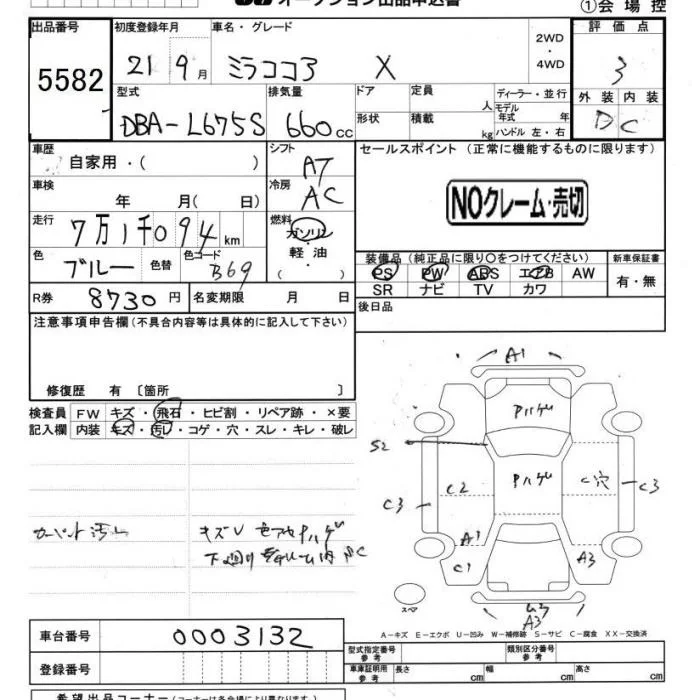 オークション出品申込書
①会場控
出品番号
5582
初度登録年月
21 9月
車名・グレード
ミラココア X
2WD
・
4WD
評価点
3
型式
DBA-L675S
排気量
660cc
ドア
形状
定員 人
積載 kg
ディーラー・並行
モデル年式 年
ハンドル 左・右
外装 内装
D C
車歴
自家用・( )
シフト
AT
車検
年 月( 日)
冷房
AC
走行
7万1千094km
燃料
ガソリン
・
軽油
( )
色
ブルー
色替
色コード
B69
R券
8730円
名変期限 月 日
セールスポイント (正常に機能するものに限ります)
NOクレーム・売切
装備品(純正品に限り○をつけてください)
PS PW ABS エアB AW
SR ナビ TV カワ
新車保証書
有・無
後日品
注意事項申告欄(不具合内容等は具体的に記入して下さい)
修復歴 有 〔箇所 〕
検査員
記入欄
FW キズ・飛石・ヒビ割・リペア跡・×要
内装 キズ・汚レ・コゲ・穴・スレ・キレ・破レ
カーペント汚レ
キズU 色アセPハゲ
A1
Pハゲ
S2
C2
Pハゲ
C穴
C3
C3
A1
C1
A3
A3
スペア
A-キズ E-エクボ U-凹み W-補修跡 S-サビ C-腐食 XX-交換済
車台番号
0003132
登録番号
型式指定番号
参考
類別区分番号
参考
車庫証明用
参考
長さ cm 幅 cm 高さ cm
希望出品コーナー